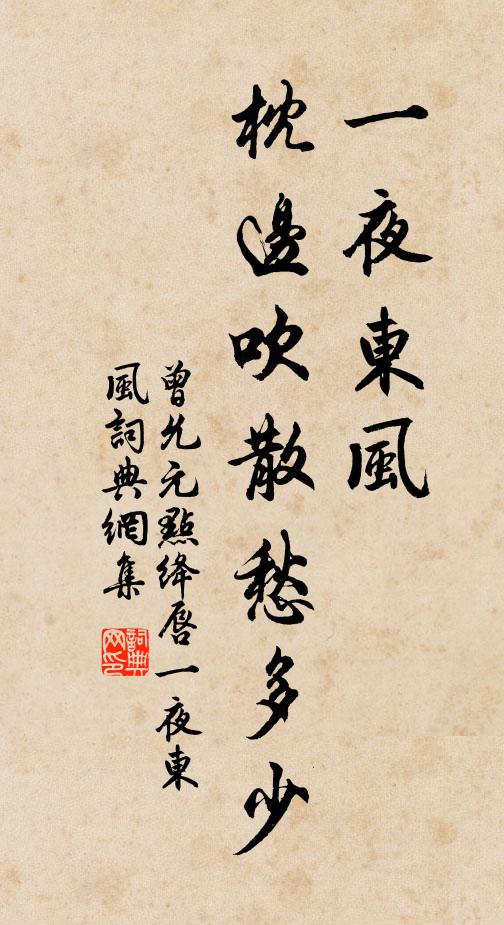 一夜東風
枕邊吹散愁多少
曾允元點絳唇一夜東
風詞典網集
詞典
网印